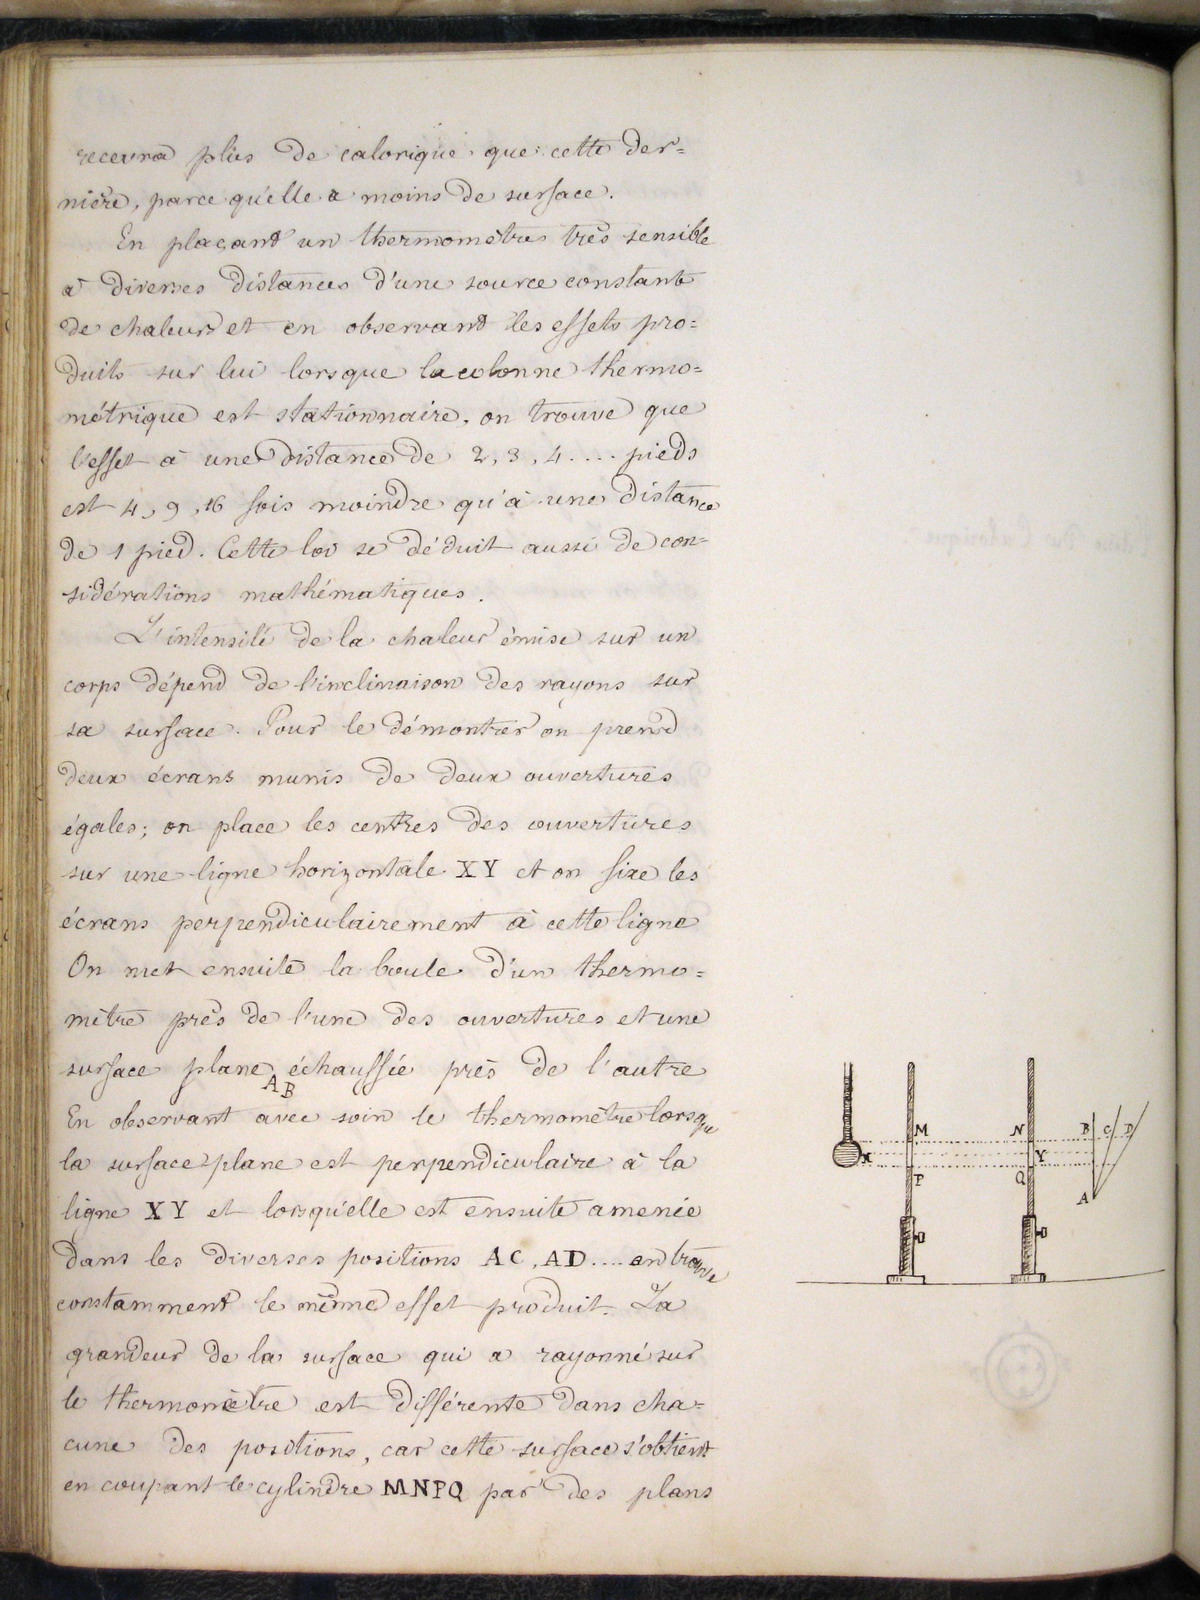 recevra plus de calorique que cette der=
nière, parce qu'elle a moins de surface.
En plaçant un thermomètre très sensible
à diverses distances d'une source constante
de chaleur et en observant les effets pro=
duits sur lui lorsque la colonne thermo=
métrique est stationnaire, on trouve que
l'effet à une distance de 2, 3, 4.... pieds
est 4, 9, 16 fois moindre qu'à une distance
de 1 pied. Cette loi se déduit aussi de con-
sidérations mathématiques.
L'intensité de la chaleur émise sur un
corps dépend de l'inclinaison des rayons sur
sa surface. Pour le démontrer on prend
deux écrans munis de deux ouvertures
égales; on place les centres des ouvertures
sur une ligne horizontale XY et on fixe les
écrans perpendiculairement à cette ligne
On met ensuite la boule d'un thermo=
mètre près de l'une des ouvertures et une
surface plane échauffée près de l'autre
AB
En observant avec soin le thermomètre lorsque
la surface plane est perpendiculaire à la
ligne XY et lorsqu'elle est ensuite amenée
dans les diverses positions AC, AD.... on trouve
constamment le même effet produit. La
grandeur de la surface qui a rayonné sur
le thermomètre est différente dans cha=
cune des positions, car cette surface s'obtient
en coupant le cylindre MNPQ par des plans
M N B C D
X Y
P Q A